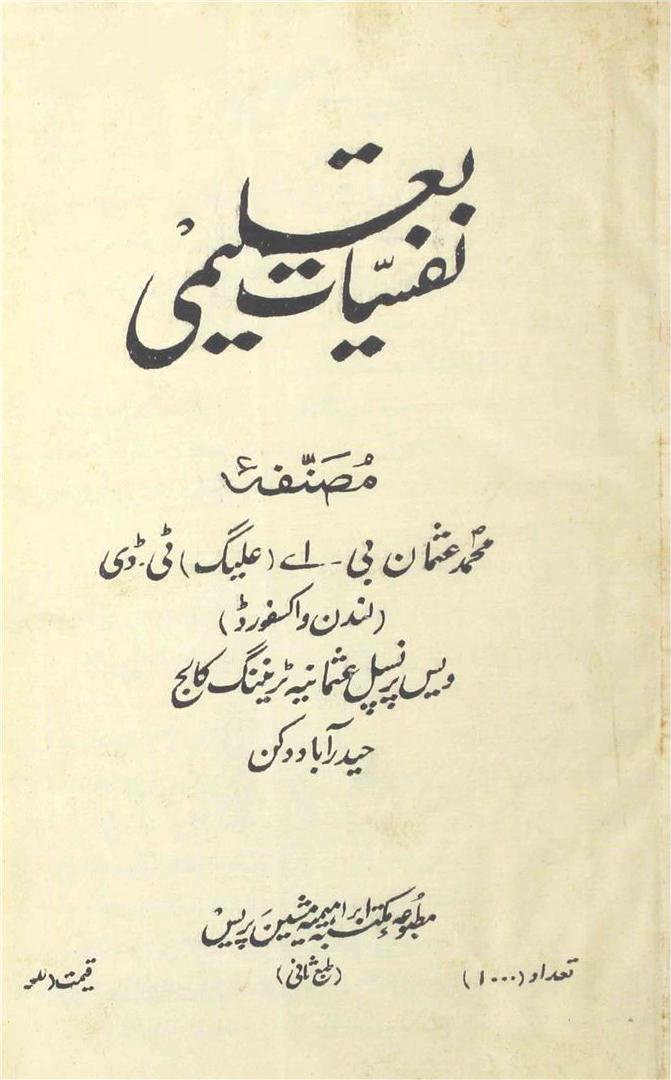 نفسیات تعلیمی
مُصَنّفہٴ
محمد عثمان بی۔ اے (علیگ) ٹی۔ ڈی
(لندن و اکسفورڈ)
ویس پرنسپل عثمانیہ ٹریننگ کالج
حیدرآباد دکن
مطبوعہ مکتبہ ابراہیمیہ مشین پریس
تعداد (۱۰۰۰)
(طبع ثانی)
قیمت